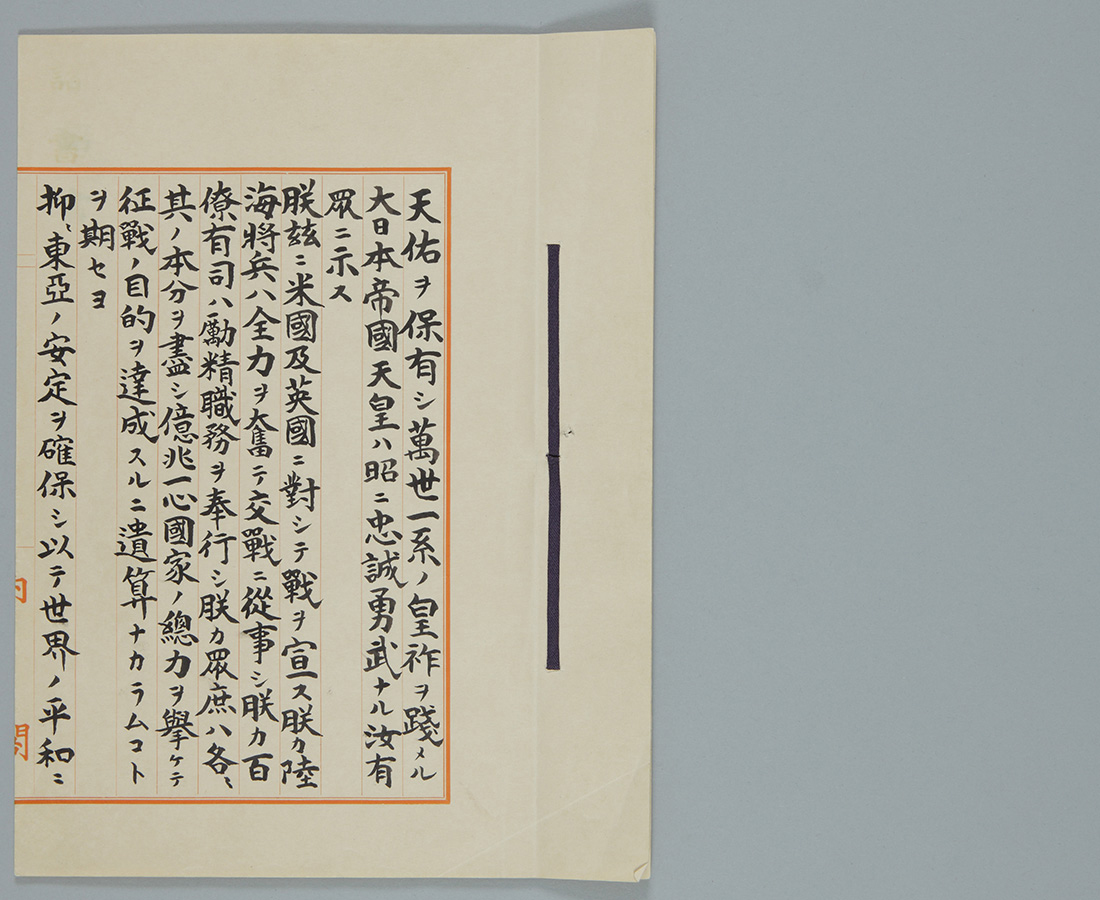 天佑ヲ保有シ萬世一系ノ皇祚ヲ踐メル
大日本帝國天皇ハ昭ニ忠誠勇武ナル汝有
眾ニ示ス
朕玆ニ米國及英國ニ對シテ戰ヲ宣ス朕カ陸
海將兵ハ全力ヲ奮テ交戰ニ從事シ朕カ百
僚有司ハ勵精職務ヲ奉行シ朕カ眾庶ハ各〻
其ノ本分ヲ盡シ億兆一心國家ノ總力ヲ擧ケテ
征戰ノ目的ヲ達成スルニ遺算ナカラムコト
ヲ期セヨ
抑〻東亞ノ安定ヲ確保シ以テ世界ノ平和ニ
內閣